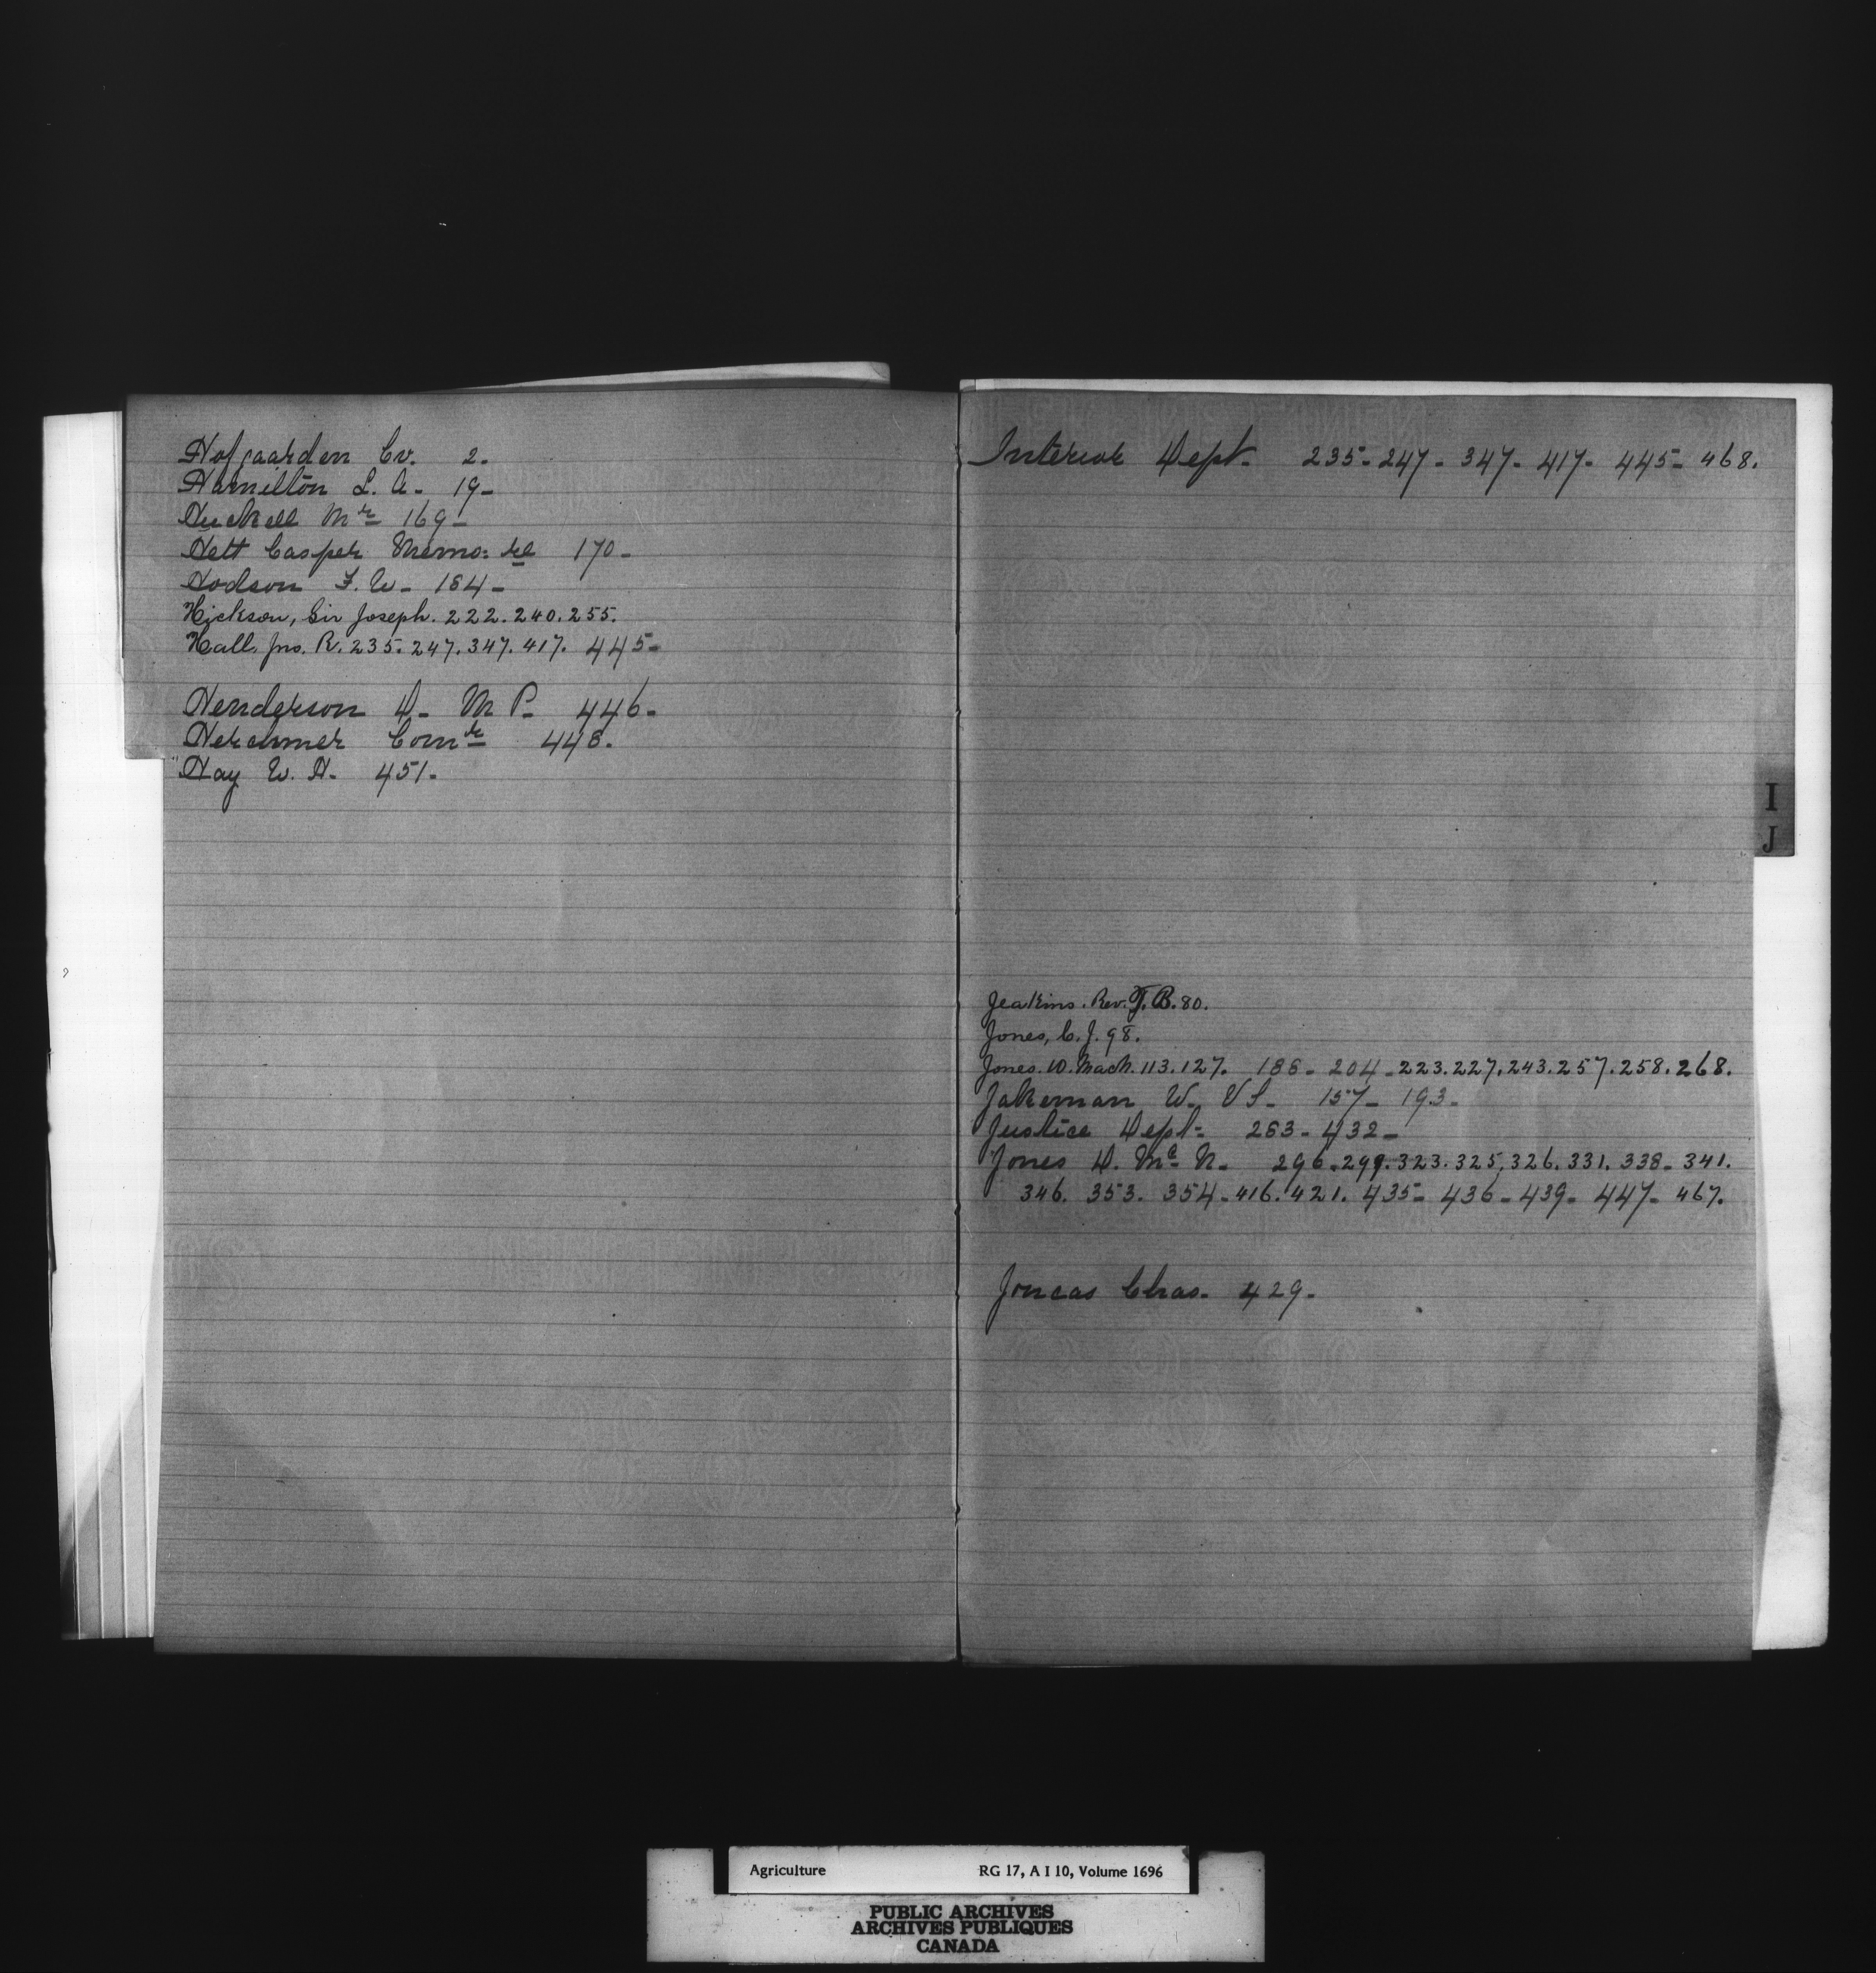 Hofgaarden Cv. 2.
Hamilton L. A. 19-
Huckell Mr 169-
Hett Casper Memo: re 170-
Hodson F. W- 184-
Hickson, Sir Joseph. 222. 240. 255.
Hall, Jno. R. 235. 247. 347. 417. 445-
Henderson D- M P- 446-
Herchmer Comr 448.
Hay W. H- 451-
Interior Dept- 235- 247- 347- 417- 445- 468.
I
J
Jeakins. Rev. J. B. 80.
Jones, C. J. 98.
Jones. D. MacN. 113. 127. 186- 204- 223. 227. 243. 257. 258. 268.
Jakeman W. V S- 157- 193-
Justice Dept- 263- 432-
Jones D. Mc N- 296. 299. 323. 325, 326. 331. 338- 341.
346. 353. 354- 416. 421. 435- 436- 439- 447- 467.
Joncas Chas- 429-
Agriculture RG 17, A I 10, Volume 1696
PUBLIC ARCHIVES
ARCHIVES PUBLIQUES
CANADA